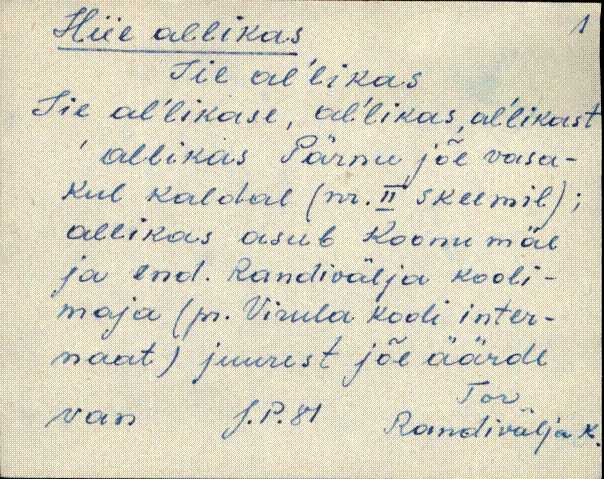 Hiie allikas 1
Iie al'likas
Iie al'likase, al'likas, al'likast
' allikas Pärnu jõe vasa-
kul kaldal (nr. II skeemil);
allikas asub Koonu mäe
ja end. Randivälja kooli-
maja (pr. Virula kooli inter-
naat) juurest jõe äärde
van J.P. 81 Tor
Randivälja k.